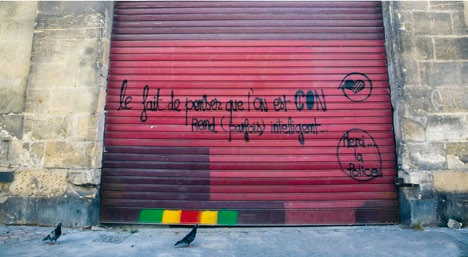 le fait de penser que l'on est CON
Rend (parfois) intelligent...
Merci...
la
Police...